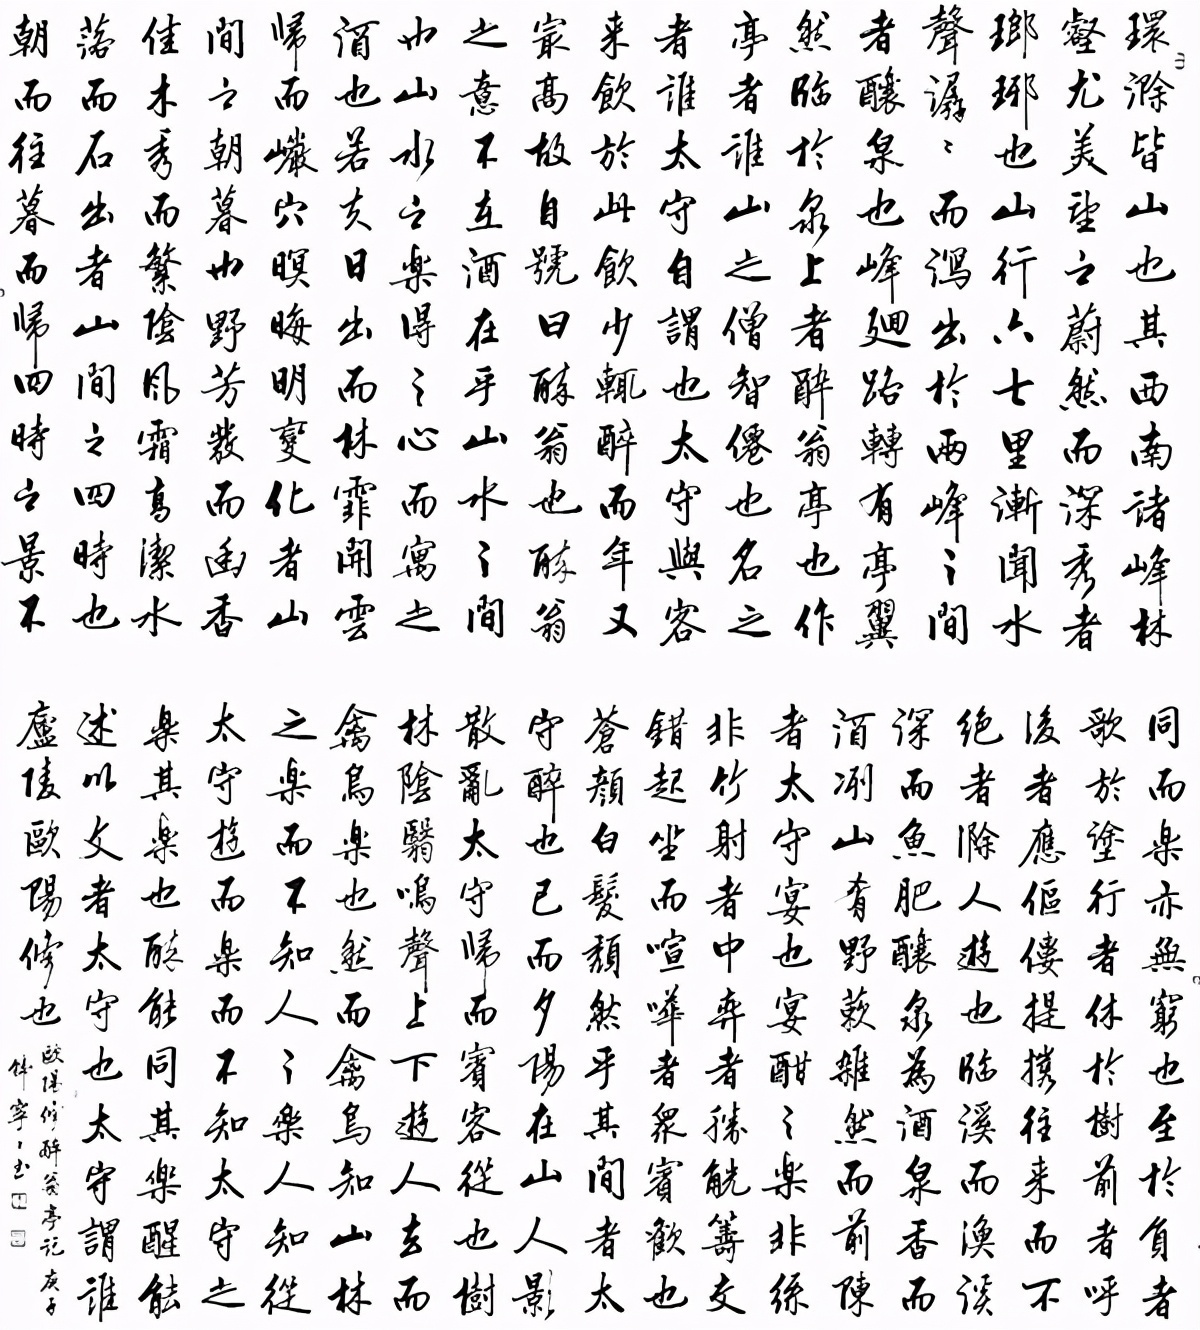 環滁皆山也其西南諸峰林
壑尤美望之蔚然而深秀者
瑯琊也山行六七里漸聞水
聲潺〻而瀉出於兩峰之間
者釀泉也峰迴路轉有亭翼
然臨於泉上者醉翁亭也作
亭者誰山之僧智僊也名之
者誰太守自謂也太守與客
来飲於此飲少輒醉而年又
最高故自號曰醉翁也醉翁
之意不在酒在乎山水之間
也山水之楽得之心而寓之
酒也若夫日出而林霏開雲
歸而巖穴暝晦明變化者山
間之朝暮也野芳發而幽香
佳木秀而繁陰風霜高潔水
落而石出者山間之四時也
朝而往暮而歸四時之景不
同而楽亦無窮也至於負者
歌於塗行者休於樹前者呼
後者應傴僂提攜往来而不
絕者滁人遊也臨溪而漁溪
深而魚肥釀泉為酒泉香而
酒冽山肴野蔌雜然而前陳
者太守宴也宴酣之楽非絲
非竹射者中弈者勝觥籌交
錯起坐而喧嘩者衆賓歡也
蒼顏白髮頹然乎其間者太
守醉也已而夕陽在山人影
散亂太守歸而賓客從也樹
林陰翳鳴聲上下遊人去而
禽鳥楽也然而禽鳥知山林
之楽而不知人之楽人知從
太守遊而楽而不知太守之
楽其楽也醉能同其楽醒能
述以文者太守也太守謂誰
廬陵歐陽修也
歐陽修醉翁亭記庚子
寧〻書